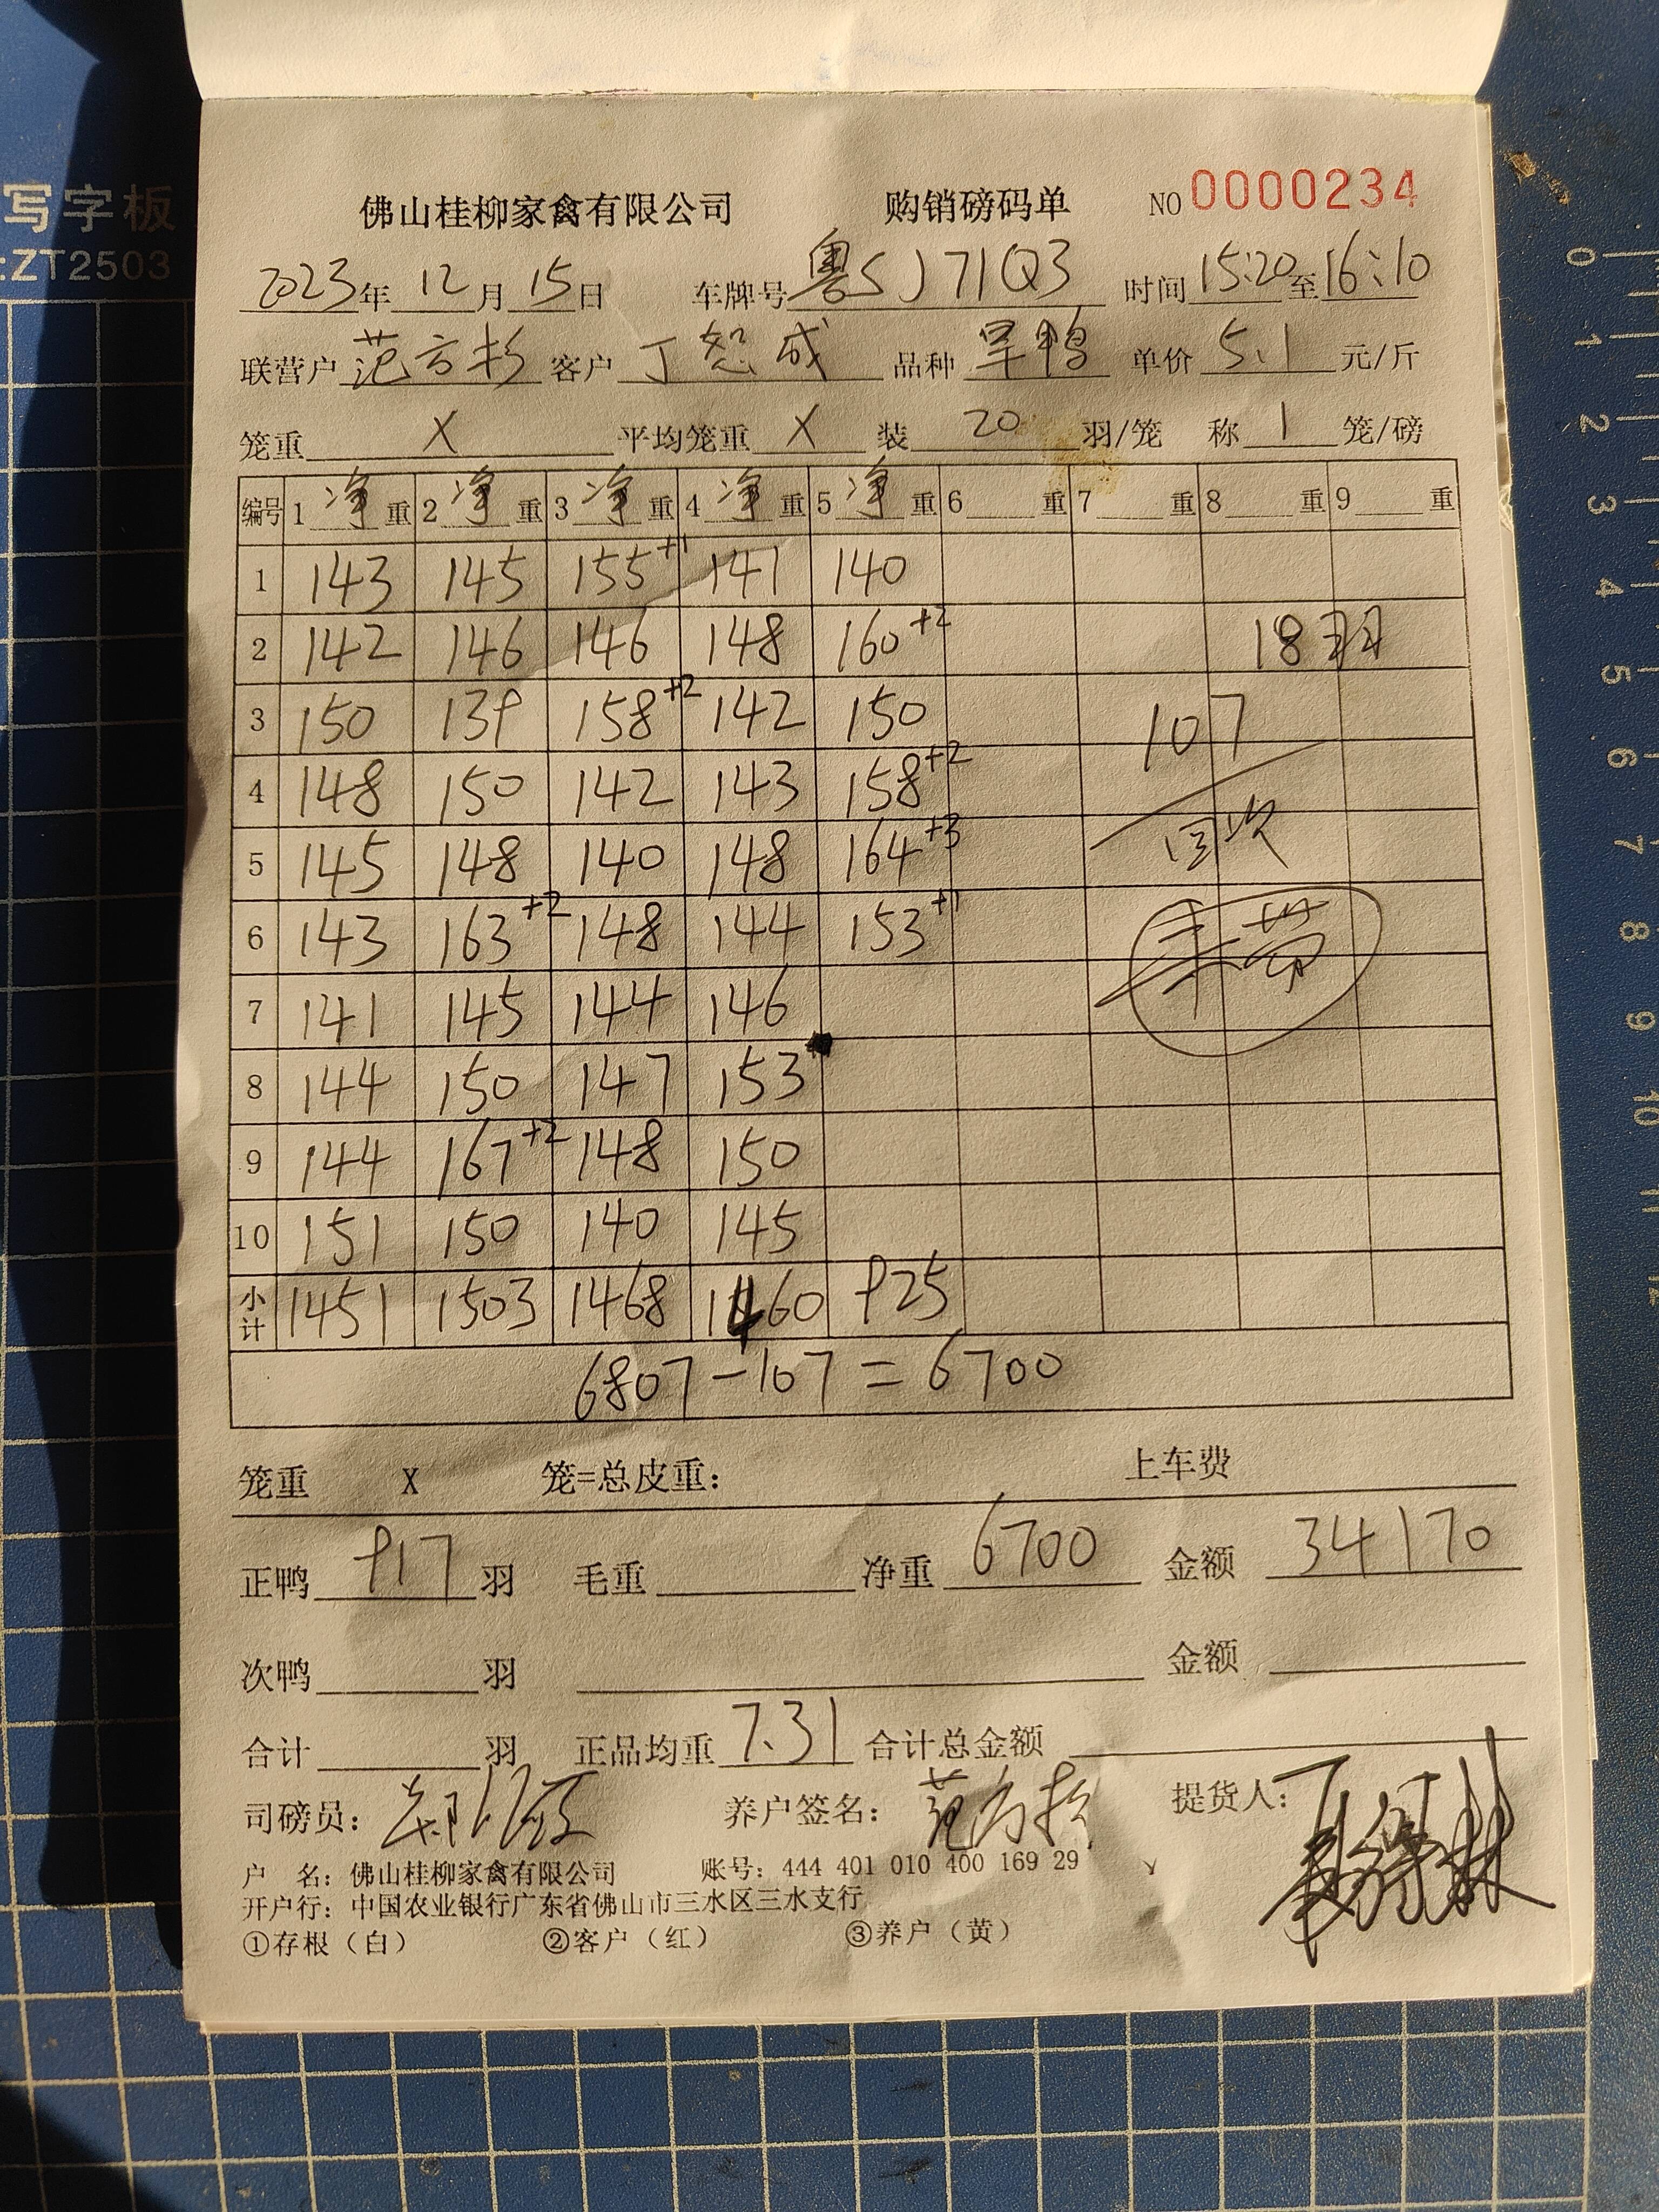 写字板
:ZT2503
佛山桂柳家禽有限公司 购销磅码单 NO 0000234
2023年 12月 15日 车牌号 粤SJ71Q3 时间 15:20 至 16:10
联营户 范方杉 客户 丁恕成 品种 旱鸭 单价 5.1 元/斤
笼重 X 平均笼重 X 装 20 羽/笼 称 1 笼/磅
编号 1 净 重 2 净 重 3 净 重 4 净 重 5 净 重 6 重 7 重 8 重 9 重
1 143 145 155+1 141 140
2 142 146 146 148 160+2 18羽
3 150 139 158+2 142 150 107
4 148 150 142 143 158+2
5 145 148 140 148 164+3 回次
6 143 163+2 148 144 153+1
7 141 145 144 146
8 144 150 147 153
9 144 167+2 148 150
10 151 150 140 145
小计 1451 1503 1468 1460 925
6807-107=6700
笼重 X 笼=总皮重： 上车费
正鸭 917 羽 毛重 净重 6700 金额 34170
次鸭 羽 金额
合计 羽 正品均重 7.31 合计总金额
司磅员： 养户签名：范方杉 提货人：
户 名：佛山桂柳家禽有限公司 账号：444 401 010 400 169 29
开户行：中国农业银行广东省佛山市三水区三水支行
①存根（白） ②客户（红） ③养户（黄）
0
1
2
3
4
5
6
7
8
9
10
11
12